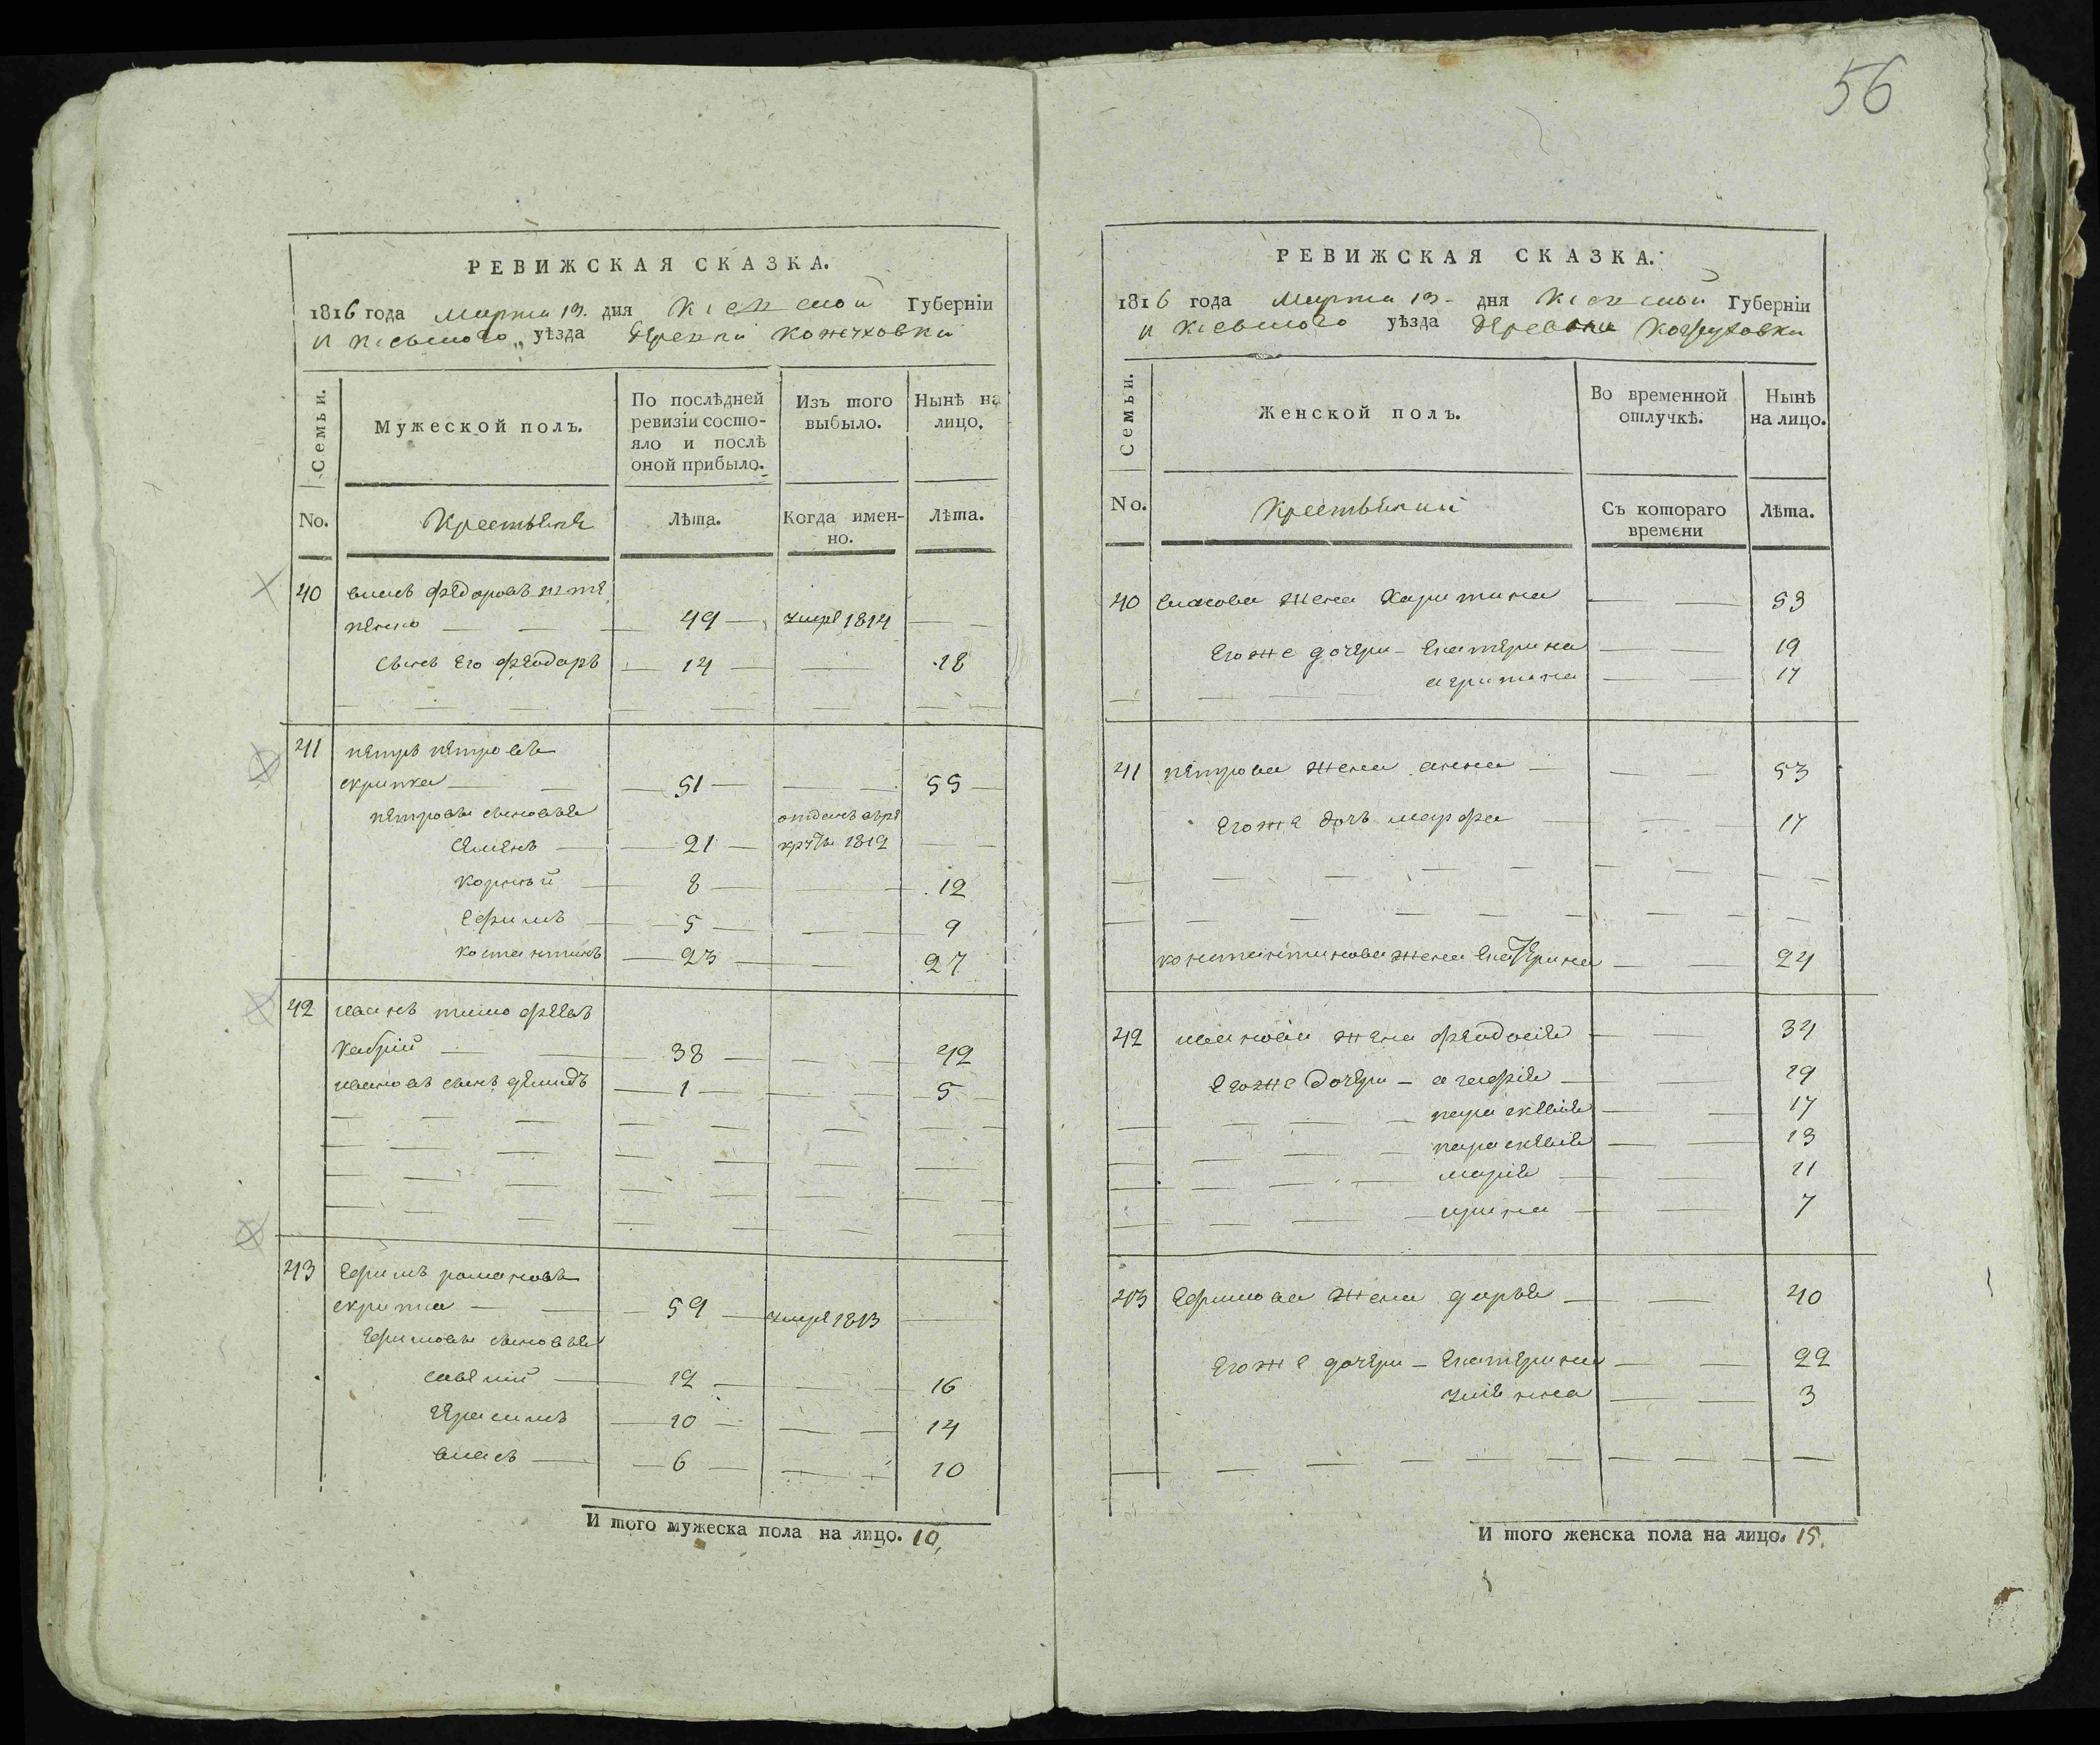 56
РЕВИЖСКАЯ СКАЗКА.
1816 года Марта 13. дня Кіевской Губерніи
и Кіевского уѣзда деревни
Семьи.
Мужеской полъ.
По послѣдней ревизіи состо-
яло и послѣ
оной прибыло.
Изъ того
выбыло.
Нынѣ на
лицо.
No.
Крестьяне
Лѣта.
Когда имен-
но.
Лѣта.
40 власъ федоровъ
49 умре 1814
сынъ его феодоръ 14 18
41 петръ петровъ
скрипка 51 55
петровы сыновья отданъ въ ре
семенъ 21 круты 1812
корнѣй 8 12
ефимъ 5 9
костантинъ 23 27
42 иванъ тимофеевъ
38 42
ивановъ сынъ демидъ 1 5
43 ефимъ романовъ
скрипка 59 умре 1813
ефимовы сыновья
савелий 12 16
герасимъ 10 14
власъ 6 10
И того мужеска пола на лицо. 10,
РЕВИЖСКАЯ СКАЗКА.
1816 года Марта 13 дня Кіевской Губерніи
и Кіевского уѣзда деревни
Семьи.
Женской полъ.
Во временной
отлучкѣ.
Нынѣ
на лицо.
No.
Крестьянки
Съ котораго
времени
Лѣта.
40 власова жена Харитина 53
его же дочери екатерина 19
17
41 петрова жена анна 53
его же дочь марфа 17
константинова жена екатерина 24
42 иванова жена феодосія 34
его же дочери агафія 19
параскевія 17
параскевія 13
марія 11
ирина 7
43 ефимова жена дарья 40
его же дочери екатерина 22
уліянна 3
И того женска пола на лицо. 15.